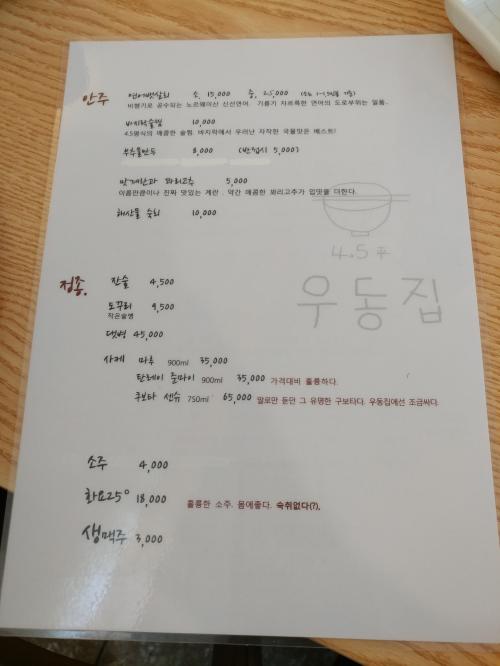 안주
연어뱃살회 소. 15,000 중. 25,000
비행기로 공수되는 노르웨이산 신선연어. 기름기 자르륵한 연어의 도로부위는 일품.
바지락술찜 10,000
4.5평식의 매콤한 술찜. 바지락에서 우러난 자작한 국물맛은 베스트!
부추물만두 8,000 (반접시 5,000)
맛계란과 꽈리고추 5,000
이름만큼이나 진짜 맛있는 계란. 약간 매콤한 꽈리고추가 입맛을 더한다.
해산물 숙회 10,000
4.5平
우동집
정종.
잔술 4,500
도꾸리 9,500
작은술병
댓병 45,000
사케 마루 900ml 35,000
탄레이 준마이 900ml 35,000 가격대비 훌륭하다.
쿠보타 센슈 750ml 65,000 말로만 듣던 그 유명한 구보타다. 우동집에선 조금싸다.
소주 4,000
화요25° 18,000 훌륭한 소주. 몸에좋다. 숙취없다(?).
생맥주 3,000